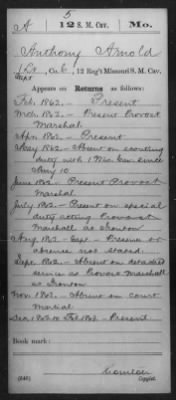 A 5 12 S. M. Cav. Mo.
Anthony Arnold
1 Lt, Co. C, 12 Reg't Missouri S. M. Cav.
Capt
Appears on Returns as follows:
Feb. 1862. - Present
Mch. 1862. - Present Provost
Marshal.
Apr. 1862. - Present
May 1862 - Absent on scouting
duty with 1 Wis. Cav. since
May 10
June 1862. Present Provost
Marshal
July 1862. - Present on special
duty acting Provost
Marshall at Ironton
Aug. 1862. - Capt. - Presence or
absence not stated.
Sept. 1862. - Absent on detached
service as Provost Marshall
at Ironton
Nov. 1862. - Absent on court
Martial
Dec. 1862 to Feb. 1863. Present.
Book mark:
(546) Copyist.